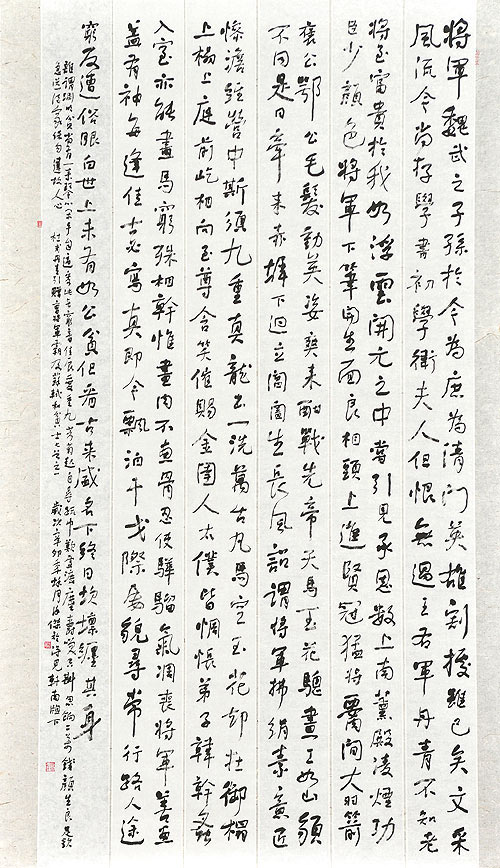 將軍魏武之子孫於今為庶為清門英雄割據雖已矣文采
風流今尚存學書初學衛夫人但恨無過王右軍丹青不知老
將至富貴於我如浮雲開元之中常引見承恩數上南薰殿凌煙功
臣少顏色將軍下筆開生面良相頭上進賢冠猛將腰間大羽箭
褒公鄂公毛髮動英姿爽来酣戰先帝天馬玉花驄畫工如山貌
不同是日牽来赤墀下迥立閶闔生長風詔謂將軍拂絹素意匠
慘澹經營中斯須九重真龍出一洗萬古凡馬空玉花却在御榻
上榻上庭前屹相向至尊含笑催賜金圉人太僕皆惆悵弟子韓幹蚤
入室亦能畫馬窮殊相幹惟畫肉不畫骨忍使驊騮氣凋喪將軍善畫
蓋有神每逢佳士必寫真即今飄泊干戈際屢貌尋常行路人途
窮反遭俗眼白世上未有如公貧但看古来盛名下終日坎壈纏其身
杜甫丹青引贈曹將軍霸 歲次辛卯